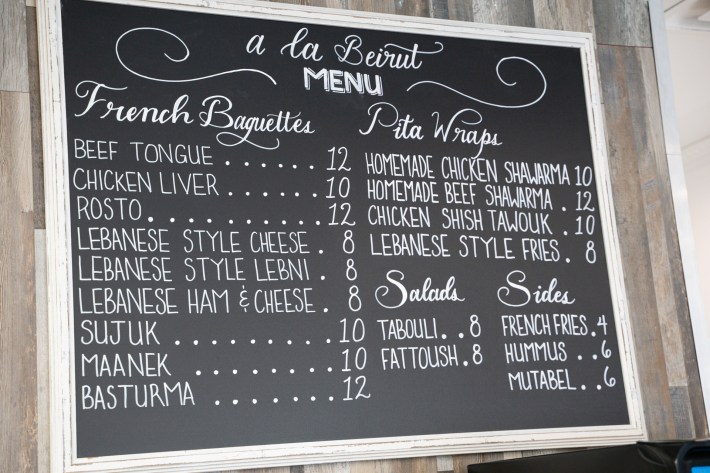 a la Beirut
MENU
French Baguettes
BEEF TONGUE . . . . . . 12
CHICKEN LIVER . . . . . . 10
ROSTO . . . . . . . . . 12
LEBANESE STYLE CHEESE . 8
LEBANESE STYLE LEBNI . 8
LEBANESE HAM & CHEESE . 8
SUJUK . . . . . . . . 10
MAANEK . . . . . . . 10
BASTURMA . . . . . . . 12
Pita Wraps
HOMEMADE CHICKEN SHAWARMA 10
HOMEMADE BEEF SHAWARMA . 12
CHICKEN SHISH TAWOUK . . 10
LEBANESE STYLE FRIES . . 8
Salads
TABOULI . . 8
FATTOUSH . 8
Sides
FRENCH FRIES . 4
HUMMUS . . . 6
MUTABEL . . . 6